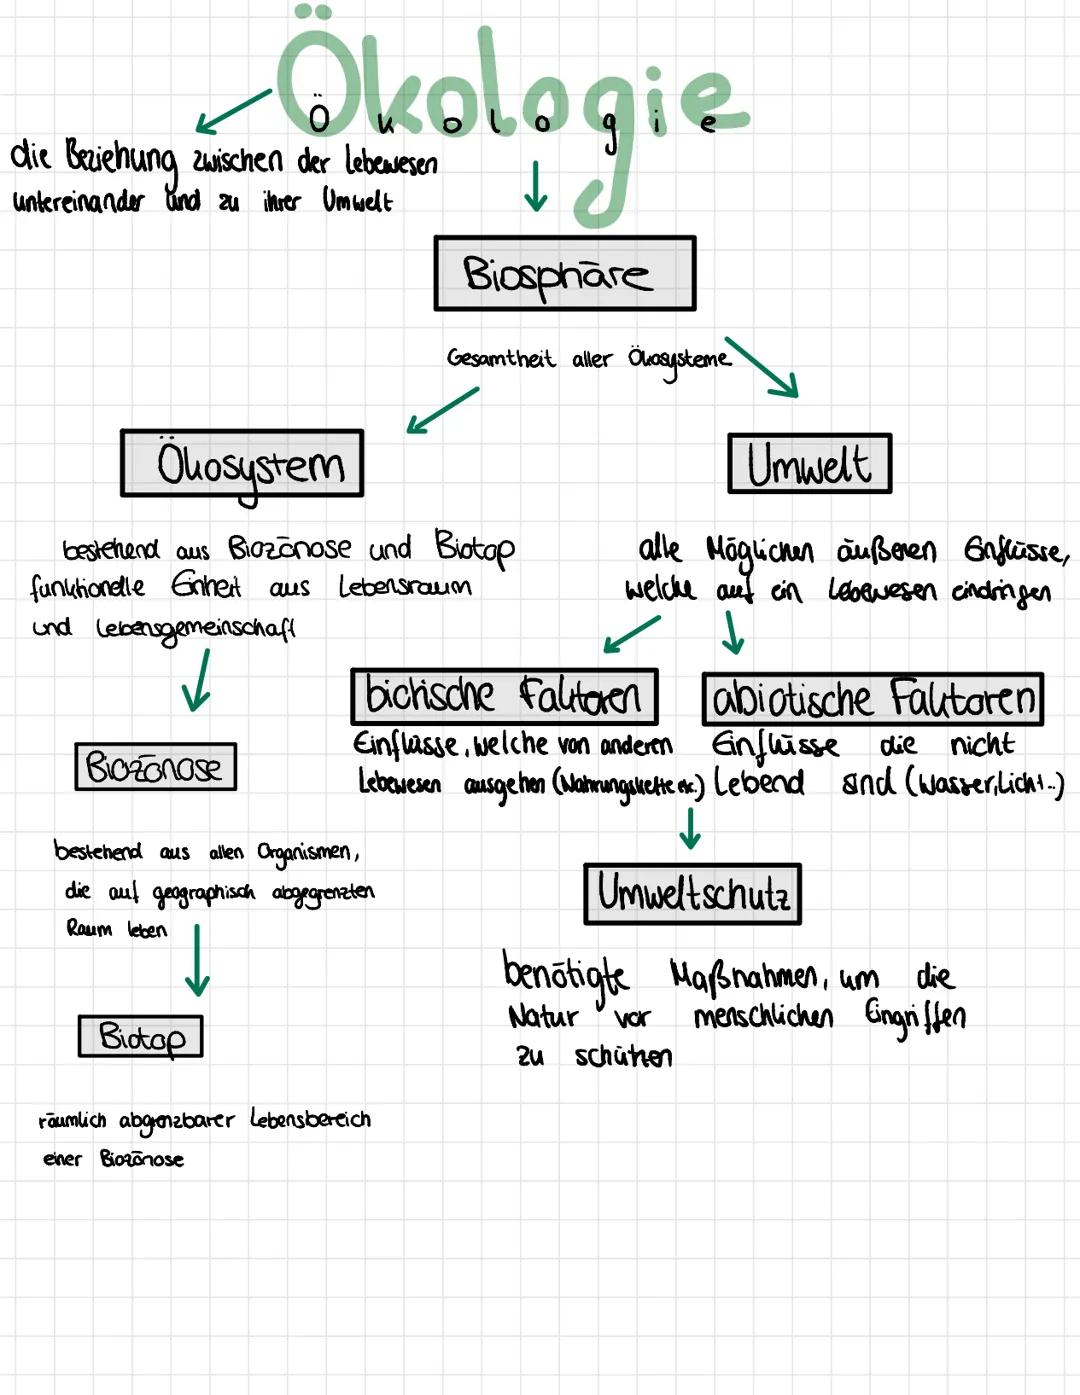 Ökologie
Ökologie
die Beziehung zwischen der Lebewesen
untereinander und zu ihrer Umwelt
Biosphäre
Gesamtheit aller Ökosysteme
Ökosystem
Umwelt
bestehend aus Biozönose und Biotop
funktionelle Einheit aus Lebensraum
und Lebensgemeinschaft
alle Möglichen äußeren Einflüsse,
welche auf ein Lebewesen eindringen
biotische Faktoren
abiotische Faktoren
Einflüsse, welche von anderen
Lebewesen ausgehen (Nahrungskette etc.)
Einflüsse die nicht
Lebend sind (Wasser, Licht..)
Biozönose
bestehend aus allen Organismen,
die auf geographisch abgegrenzten
Raum leben
Umweltschutz
benötigte Maßnahmen, um die
Natur vor menschlichen Eingriffen
zu schützen
Biotop
räumlich abgrenzbarer Lebensbereich
einer Biozönose